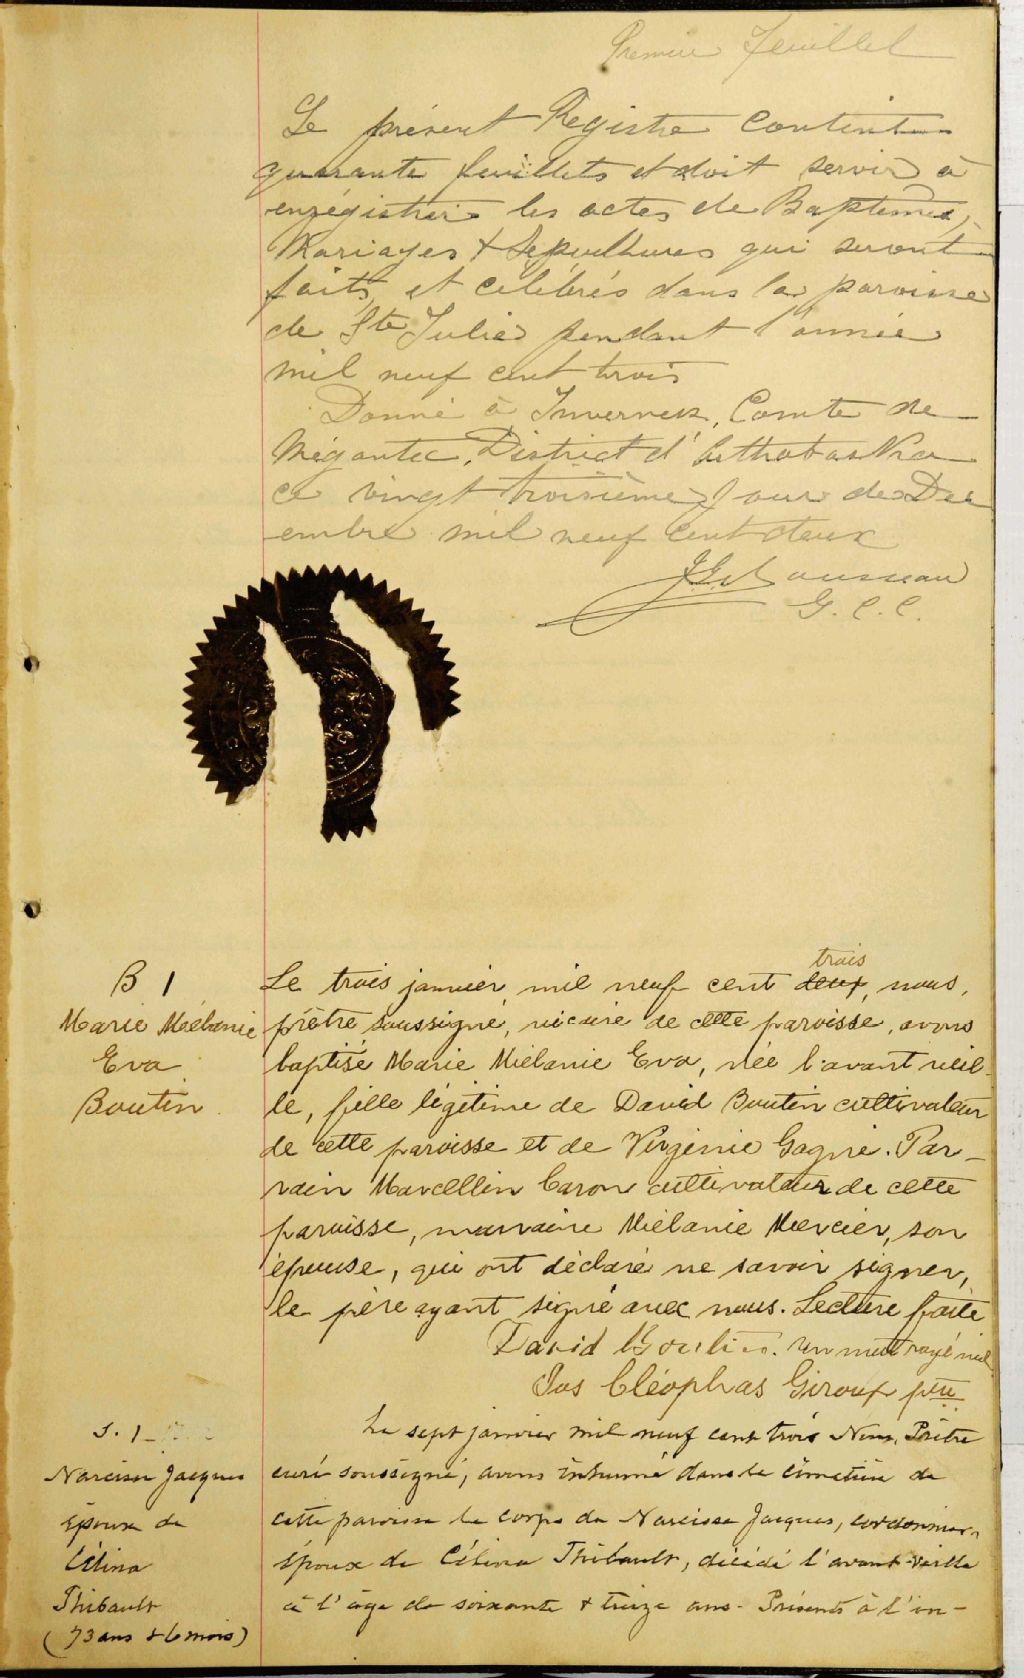 Premier feuillet
Le présent Registre contient
quarante feuillets et doit servir à
enrégistrer les actes de Baptêmes,
Mariages & Sépultures qui seront
faits et célébrés dans la paroisse
de Ste Julie pendant l'année
mil neuf cent trois
Donné à Inverness, Comté de
Mégantic, District d'Arthabaska
ce vingt troisième Jour de Dec
embre mil neuf cent deux
Rousseau
G. C. C.
B 1
Marie Mélanie
Eva
Boutin
trois
Le trois janvier, mil neuf cent deux, nous,
prêtre soussigné, vicaire de cette paroisse, avons
baptisé Marie Mélanie Eva, née l'avant veil-
le, fille légitime de David Boutin cultivateur
de cette paroisse et de Virginie Gagné. Par-
rain Marcellin Caron cultivateur de cette
paroisse, marraine Mélanie Mercier, son
épouse, qui ont déclaré ne savoir signer,
le père ayant signé avec nous. Lecture faite
David Boutin. Un mot rayé nul
Jos Cléophas Giroux ptre
S. 1
Narcisse Jacques
Epoux de
Célina
Thibault
(73 ans & 6 mois)
Le sept janvier mil neuf cent trois Nous, Prêtre
curé soussigné, avons inhumé dans le cimetière de
cette paroisse le corps de Narcisse Jacques, cordonnier,
époux de Célina Thibault, décédé l'avant-veille
à l'âge de soixante & treize ans. Présents à l'in-